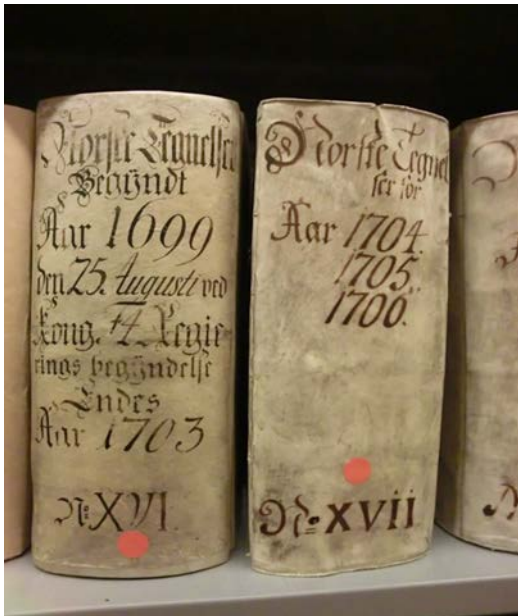 Norske Tegnelser
Begÿndt
Aar 1699
den 25. Augusti ved
Kong. F4. Regie-
rings begÿndelse
Endes
Aar 1703
No. XVI.
Norske Tegnel
ser for
Aar 1704.
1705.
1706.
No XVii